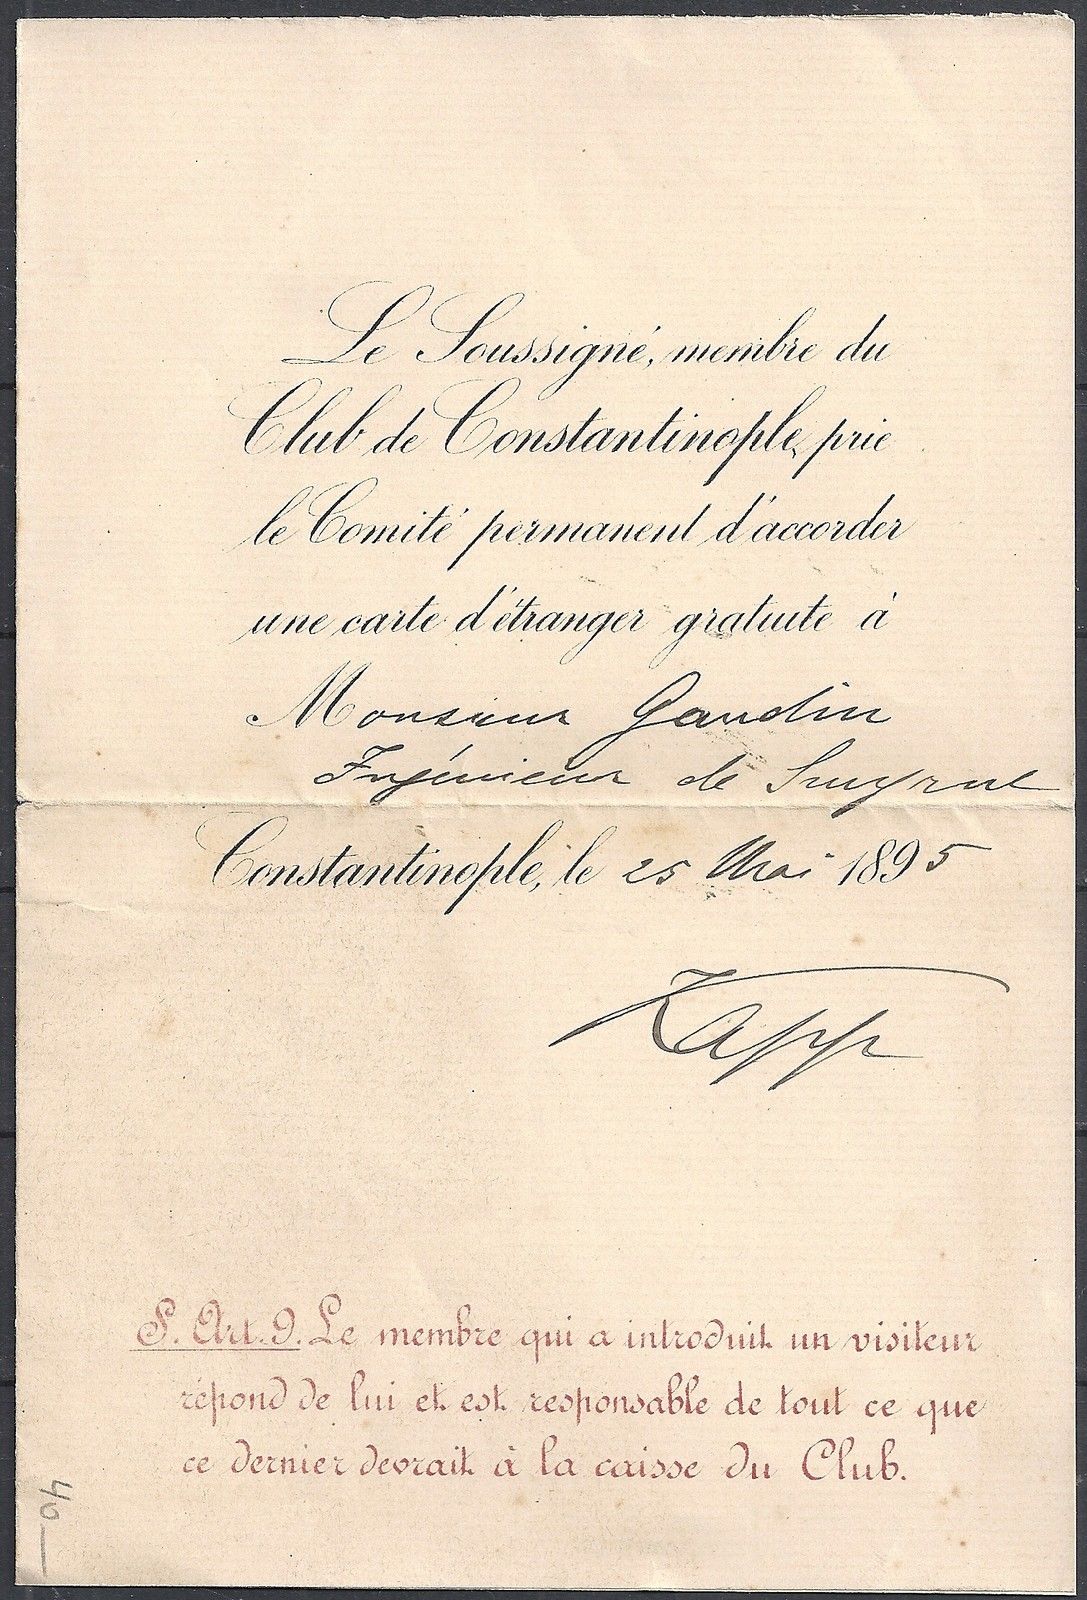 Le Soussigné, membre du
Club de Constantinople, prie
le Comité permanent d'accorder
une carte d'étranger gratuite à
Monsieur Gaudin
Ingénieur de Smyrne
Constantinople, le 25 Mai 1895
Kapp
S. Art. 9. Le membre qui a introduit un visiteur
répond de lui et est responsable de tout ce que
ce dernier devrait à la caisse du Club.
40